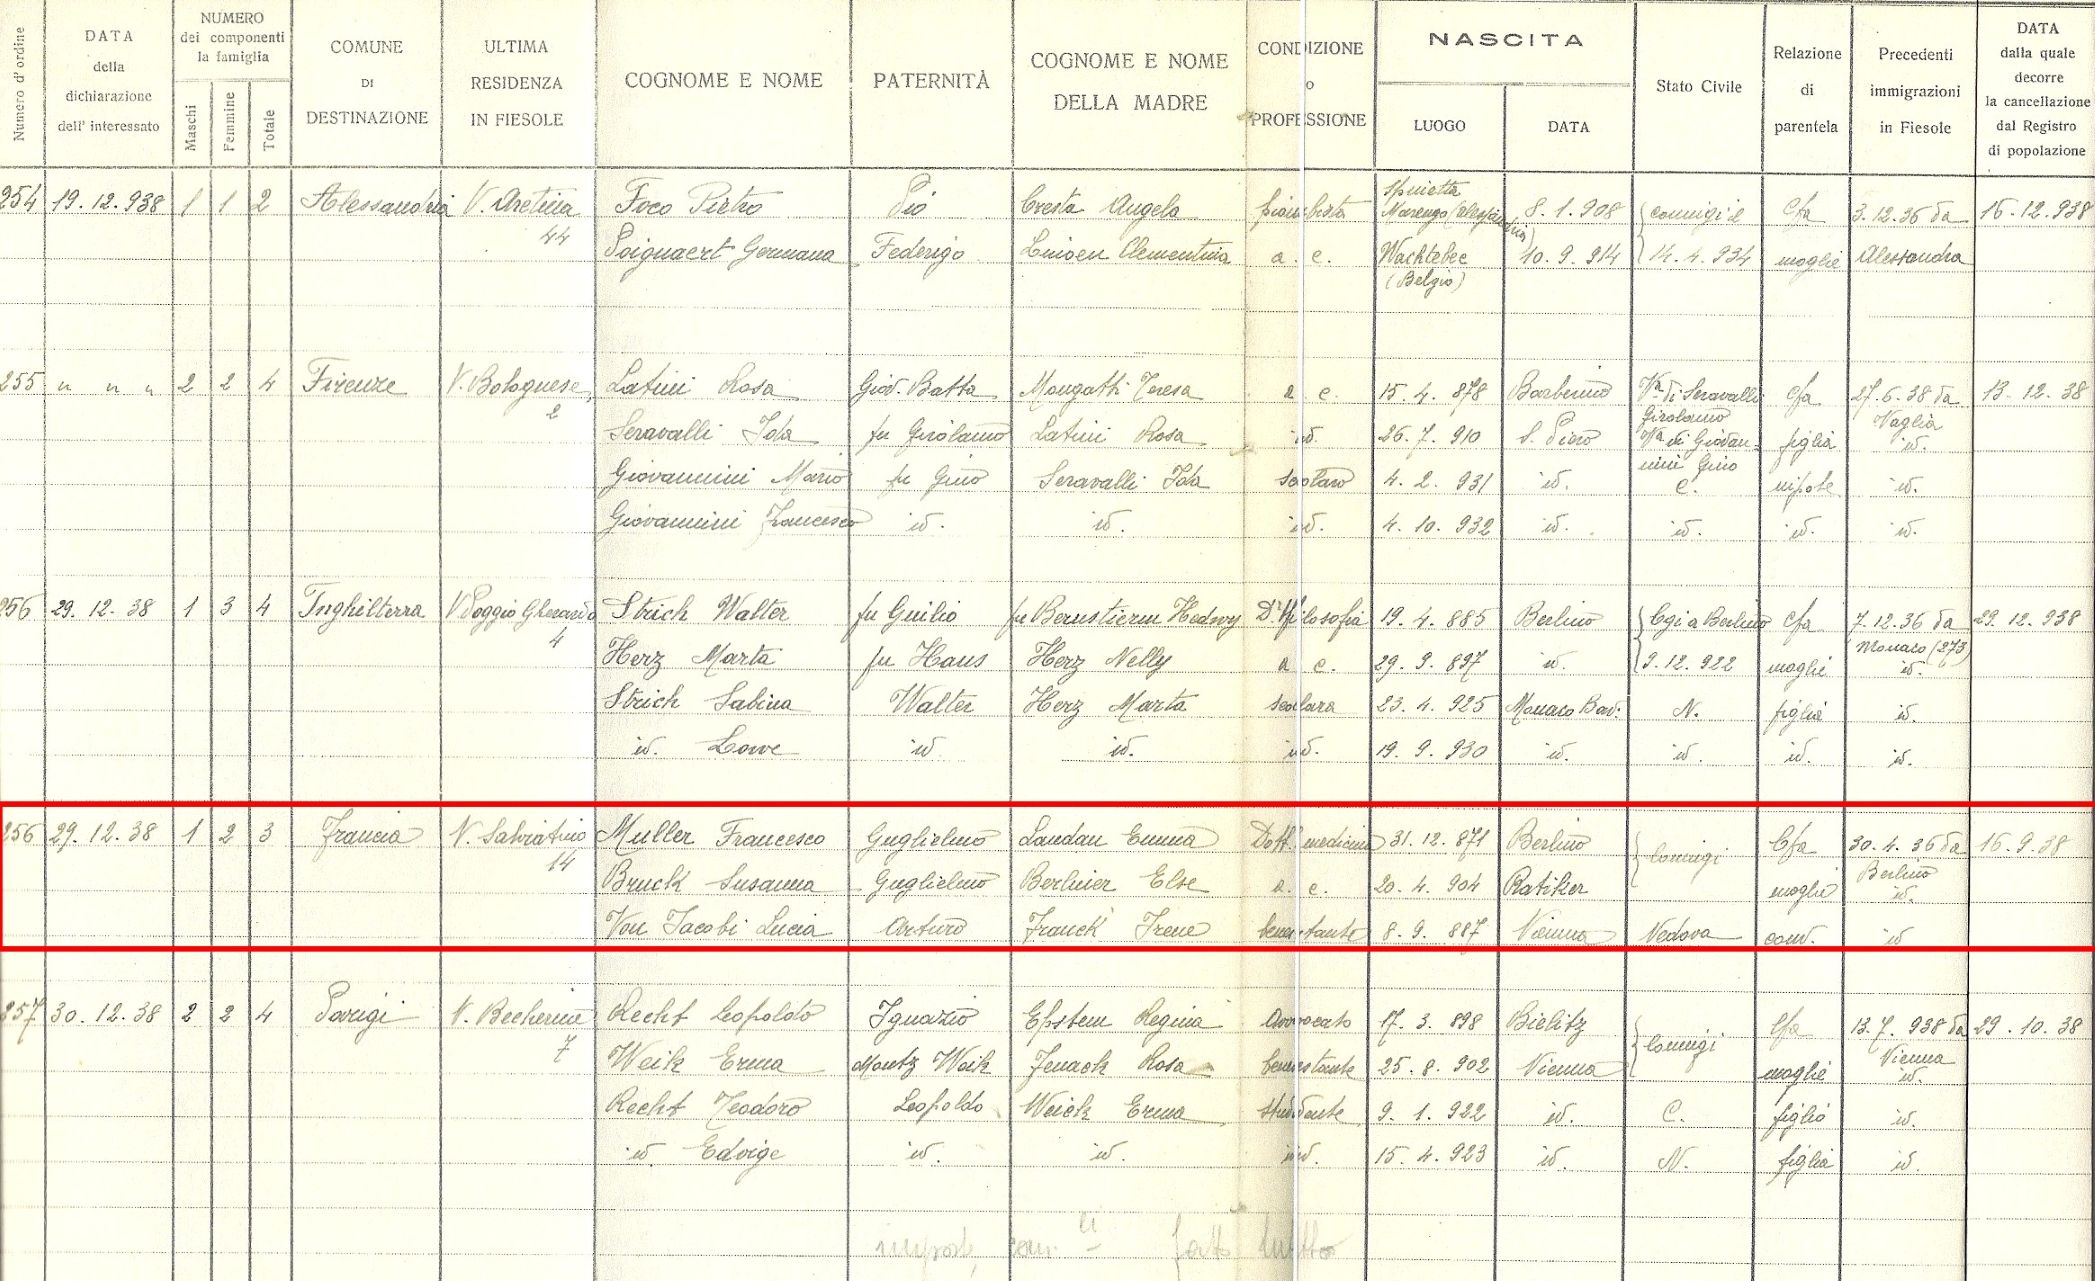 Numero d' ordine
DATA
della
dichiarazione
dell' interessato
NUMERO
dei componenti
la famiglia
Maschi
Femmine
Totale
COMUNE
DI
DESTINAZIONE
ULTIMA
RESIDENZA
IN FIESOLE
COGNOME E NOME
PATERNITÀ
COGNOME E NOME
DELLA MADRE
CONDIZIONE
o
PROFESSIONE
NASCITA
LUOGO
DATA
Stato Civile
Relazione
di
parentela
Precedenti
immigrazioni
in Fiesole
DATA
dalla quale
decorre
la cancellazione
dal Registro
di popolazione
254 19.12.938 1 1 2 Alessandria V. Aretina 44 Foco Pietro Pio Cresta Angela Spinetta Marengo (Alessandria) 8.1.908 coniugi il Cfa 3.12.36 da 16.12.938
Soignaert Germana Federigo Clementina a. c. Wachtebec (Belgio) 10.9.914 14.4.934 moglie Alessandra
255 " " " 2 2 4 Firenze V. Bolognese, 2 Latini Rosa Giov. Batta Mongatti Teresa a c. 15.4.878 Barberino Va. di Seravalli Girolamo Cfa 27.6.38 da Vaglia 13.12.38
Seravalli Ida fu Girolamo Latini Rosa id. 26.7.910 S. Piero Va di Giovannini Gino figlia id.
Giovannini Mario fu Gino Seravalli Ida scolaro 4.2.931 id. C. nipote id.
Giovannini Francesco id. id. id. 4.10.932 id. id. id. id.
256 29.12.38 1 3 4 Inghilterra V. Poggio Gherardo 4 Strich Walter fu Guilio fu Bernstierm Hedwy Dr. filosofia 19.4.885 Berlino Cgi a Berlino Cfa 7.12.36 da Monaco (273) 29.12.938
Herz Marta fu Hans Herz Nelly a c. 29.9.897 id. 9.12.922 moglie id.
Strich Sabina Walter Herz Marta scolara 23.4.925 Monaco Bav. N. figlia id.
id. Lowe id. id. id. 19.9.930 id. id. id. id.
256 29.12.38 1 2 3 Francia V. Salviatino 14 Muller Francesco Guglielmo Landau Emma Dott. medicina 31.12.871 Berlino Coniugi Cfa 30.4.36 da Berlino 16.9.38
Bruck Susanna Guglielmo Berliner Else a. c. 20.4.904 Ratiker moglie id.
Von Jacobi Lucia Arturo Franck Irene benestante 8.9.887 Vienna Vedova conv. id
257 30.12.38 2 2 4 Parigi V. Becherina 7 Recht Leopoldo Ignazio Epstem Regina Avvocato 17.3.898 Bielitz Coniugi Cfa 13.7.938 da Vienna 29.10.38
Weik Erma Moritz Weik Jenack Rosa benestante 25.8.902 Vienna moglie id.
Recht Teodoro Leopoldo Weick Erma studente 9.1.922 id. C. figlio id.
id Edvige id. id. id. 15.4.923 id. N. figlia id.
fatto tutto